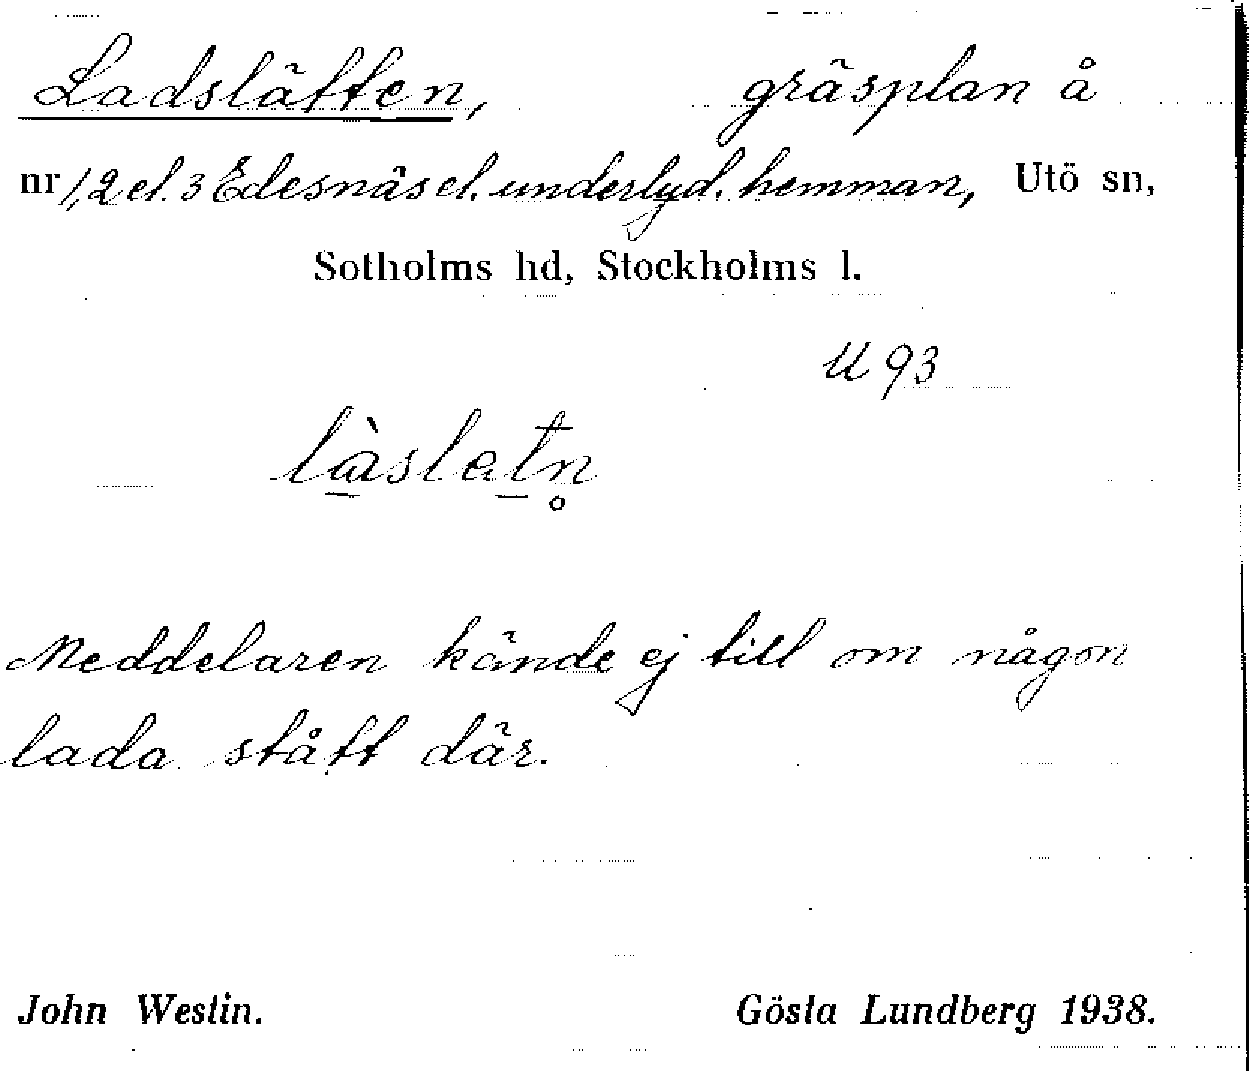 Ladslätten, gräsplan å
nr 1, 2 el. 3 Edesnäs el. underlyd. hemman, Utö sn,
Sotholms hd, Stockholms l.
U 93
làslatn̥
Meddelaren kände ej till om någon
lada stått där.
John Westin. Gösta Lundberg 1938.